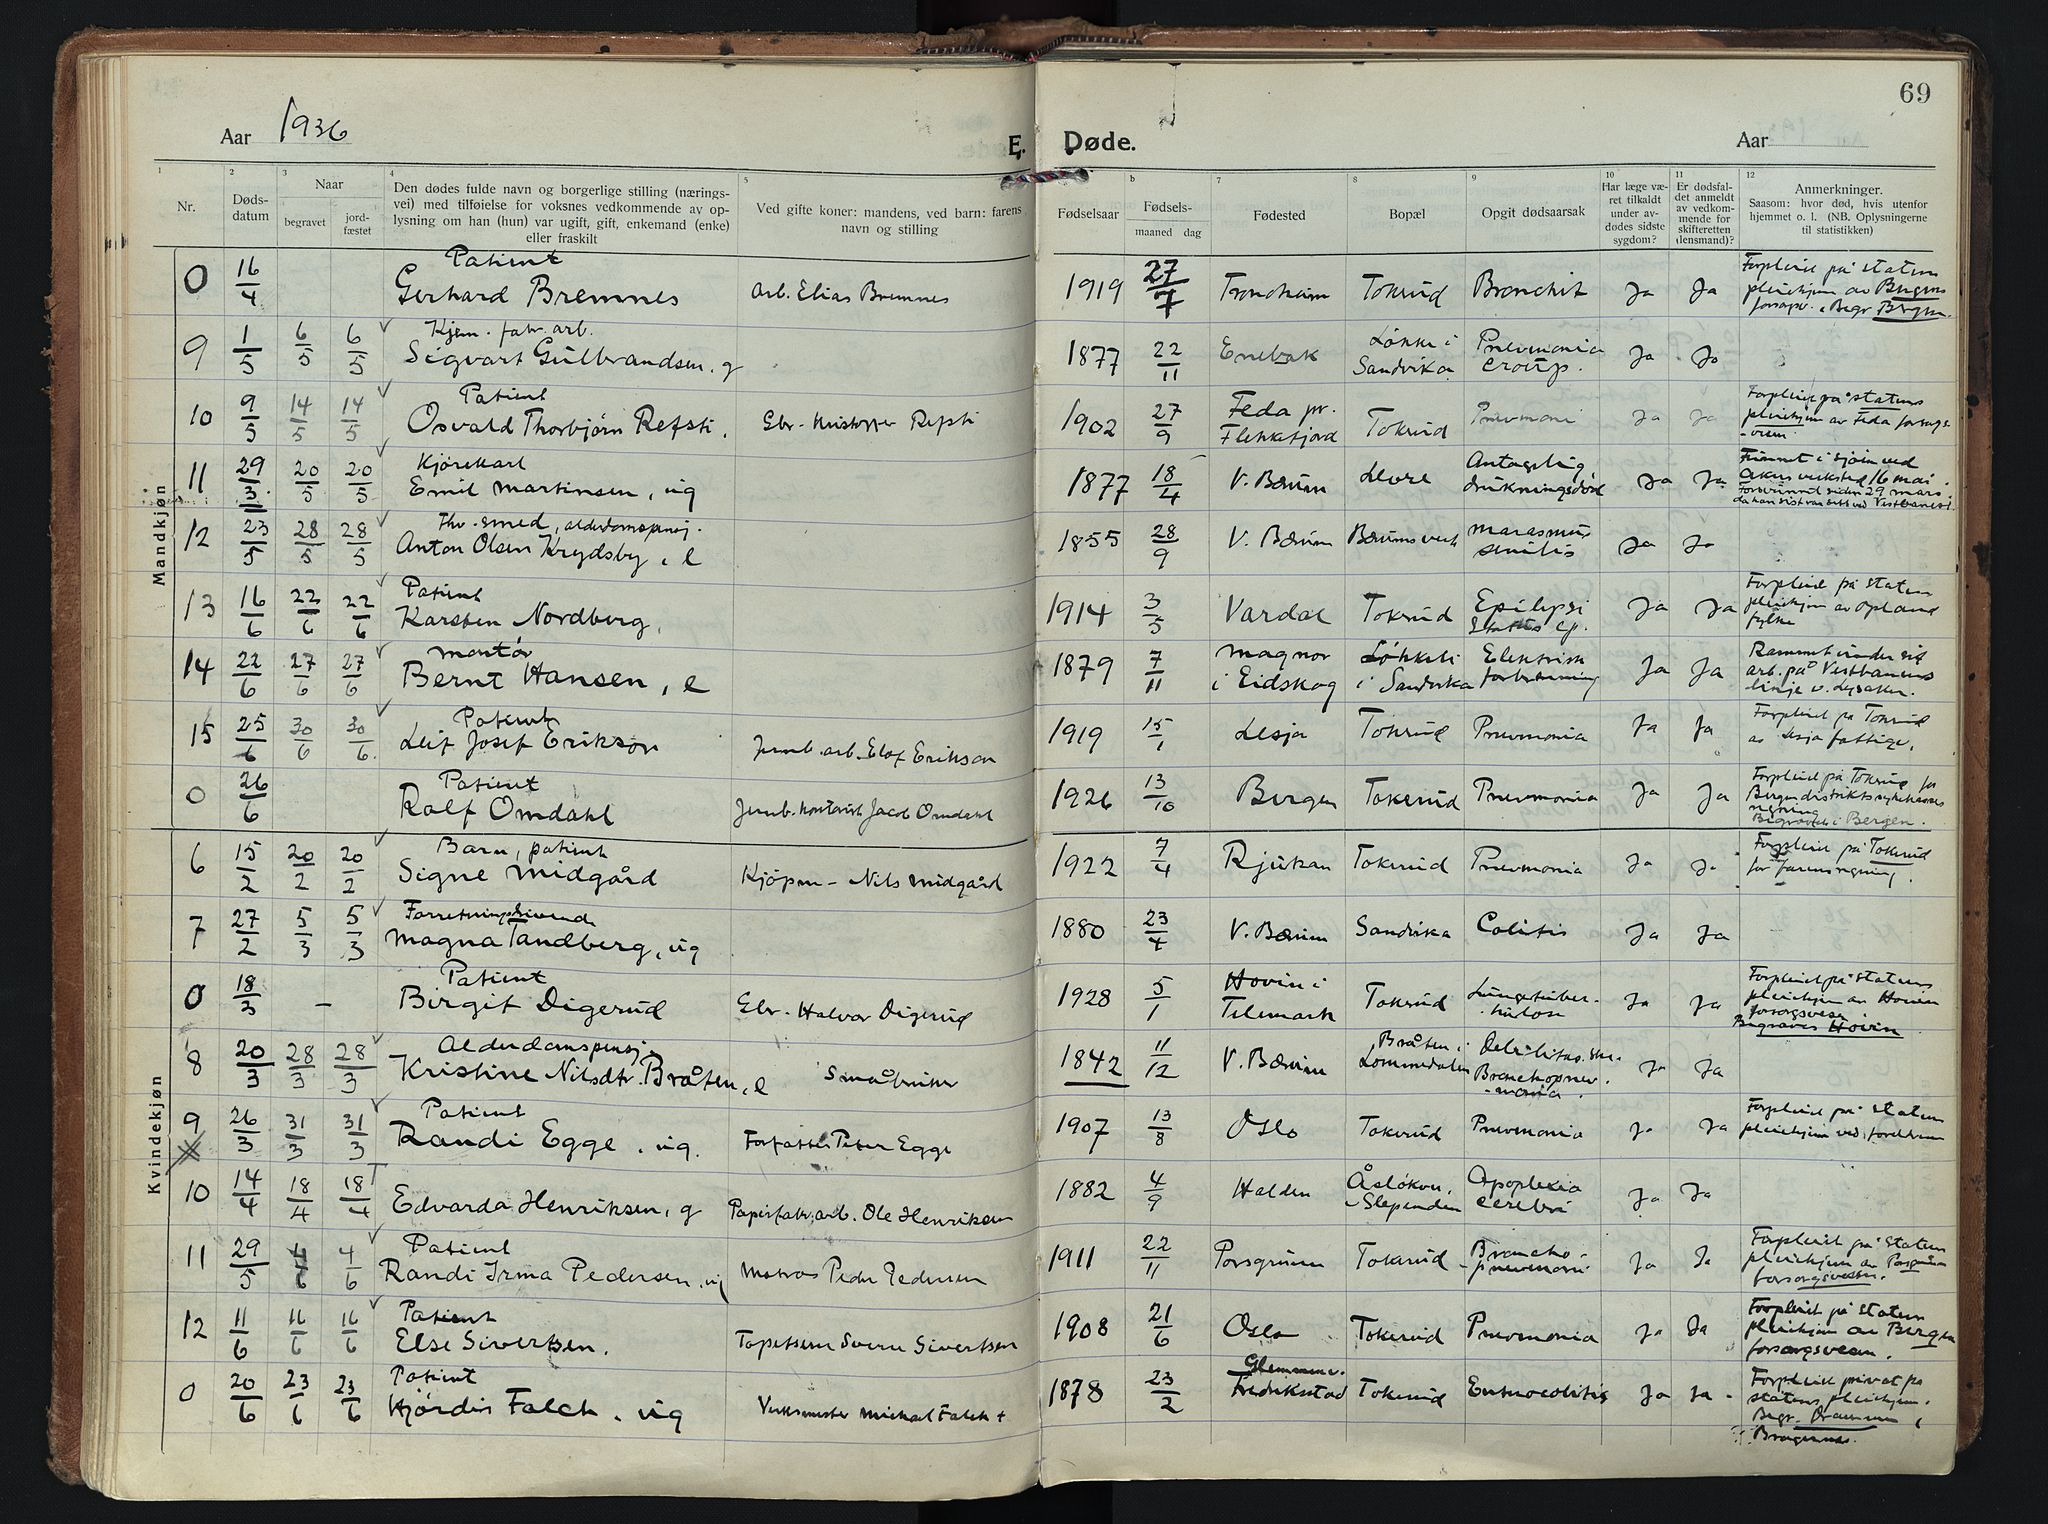 69
Aar 1936 E. Døde. Aar
1 2 3 4 5 6 7 8 9 10 11 12
Nr. Dødsdatum Naar begravet jordfæstet
Den dødes fulde navn og borgerlige stilling (næringsvei) med tilføielse for voksnes vedkommende av oplysning om han (hun) var ugift, gift, enkemand (enke) eller fraskilt
Ved gifte koner: mandens, ved barn: farens navn og stilling
Fødselsaar b Fødselsmaaned dag Fødested Bopæl Opgit dødsaarsak
Har læge været tilkaldt under avdødes sidste sygdom?
Er dødsfaldet anmeldt av vedkommende for skifteretten (lensmand)?
Anmerkninger. Saasom: hvor død, hvis utenfor hjemmet o. l. (NB. Oplysningerne til statistikken)
Mandkjøn
0 16/4 Patient Gerhard Bremnes arb. Elias Bremnes 1919 27/7 Trondheim Tokerud Bronchit Ja Ja Forpleiet på statens pleiehjem av Bergens forsorgsv. Begr. Bergen.
9 1/5 6/5 6/5 Kjem. fabr. arb. Sigvart Gulbrandsen, g 1877 22/11 Enebak Løkke i Sandvika Pnevmonia croup. Ja Ja
10 9/5 14/5 14/5 Patient Osvald Thorbjørn Refsti. Ebr. Kristoffer Refsti 1902 27/9 Feda pr. Flekkefjord Tokerud Pnevmoni Ja Ja Forpleiet på statens pleiehjem av Feda forsorgsvesen.
11 29/3 20/5 20/5 Kjørekarl Emil Martinsen, ug 1877 18/4 V. Bærum Levre Antagelig drukningsdød Ja Ja Funnet i sjøen ved Akers verksted 16 mai. Forsvunnet siden 29 mars. da han sist var sett ved Vestbanest.
12 23/5 28/5 28/5 Fhv. smed, alderdomspensj. Anton Olsen Krydsby, e 1855 28/9 V. Bærum Bærums verk marasmus senilis Ja Ja
13 16/6 22/6 22/6 Patient Karsten Nordberg, 1914 3/5 Vardal Tokerud Epilepsi Status ep. Ja Ja Forpleiet på statens pleiehjem av Opland fylke
14 22/6 27/6 27/6 montør Bernt Hansen, e 1879 7/11 Magnor i Eidskog Løkkeli i Sandvika Elektrisk forbrenning Ja Ja Rammet under sit arb. på Vestbanens linje v. Lysaker.
15 25/6 30/6 30/6 Patient Leif Josef Erikson Jernb. arb. Elof Erikson 1919 15/1 Lesja Tokerud Pnevmonia Ja Ja Forpleiet på Tokerud av Lesja fattigv.
0 26/6 Patient Rolf Omdahl Jernb. kontorist Jacob Omdahl 1926 13/10 Bergen Tokerud Pnevmonia Ja Ja Forpleiet på Tokerud for Bergen distriktssykekasses regning Begravet i Bergen.
Kvindekjøn
6 15/2 20/2 20/2 Barn, patient Signe Midgård Kjøpm. Nils Midgård 1922 7/4 Rjukan Tokerud Pnevmonia Ja Ja Forpleiet på Tokerud for farens regning.
7 27/2 5/3 5/3 Forretningsdrivende Magna Tandberg, ug 1880 23/4 V. Bærum Sandvika Colitis Ja Ja
0 18/3 – Patient Birgit Digerud Ebr. Halvor Digerud 1928 5/1 Hovin i Telemark Tokerud Lungetuberkulose Ja Ja Forpleiet på Statens pleiehjem av Hovin forsorgsvesen Begraves Hovin
8 20/3 28/3 28/3 Alderdomspensj. Kristine Nilsdtr. Bråten, e Småbruker 1842 11/12 V. Bærum Bråten i Lommedalen Debilitas. sen. Bronchopnevmonia. Ja Ja
9 26/3 31/3 31/3 Patient Randi Egge, ug. Forfatter Peter Egge 1907 13/8 Oslo Tokerud Pnevmonia Ja Ja Forpleiet på statens pleiehjem ved foreldrene
10 14/4 18/4 18/4 Edvarda Henriksen, g Papirfabr. arb. Ole Henriksen 1882 4/9 Halden Slependen Apoplexia cerebri Ja Ja
11 29/5 4/6 4/6 Patient Randi Irma Pedersen, ug Matros Peder Pedersen 1911 22/11 Porsgrunn Tokerud Bronchopnevmoni Ja Ja Forpleiet på Statens pleiehjem av Porsgrunn forsorgsvesen.
12 11/6 16/6 16/6 Patient Else Sivertsen. Tapetserer Sverre Sivertsen 1908 21/6 Oslo Tokerud Pnevmonia Ja Ja Forpleiet på statens pleiehjem av Bergen forsorgsvesen.
0 20/6 23/6 23/6 Patient Hjørdis Falck, ug Verksmester Michael Falck + 1878 23/2 Glemmen v. Fredrikstad Tokerud Enterocolitis Ja Ja Forpleiet privat på statens pleiehjem. Begr. Drammen, Bragernes.